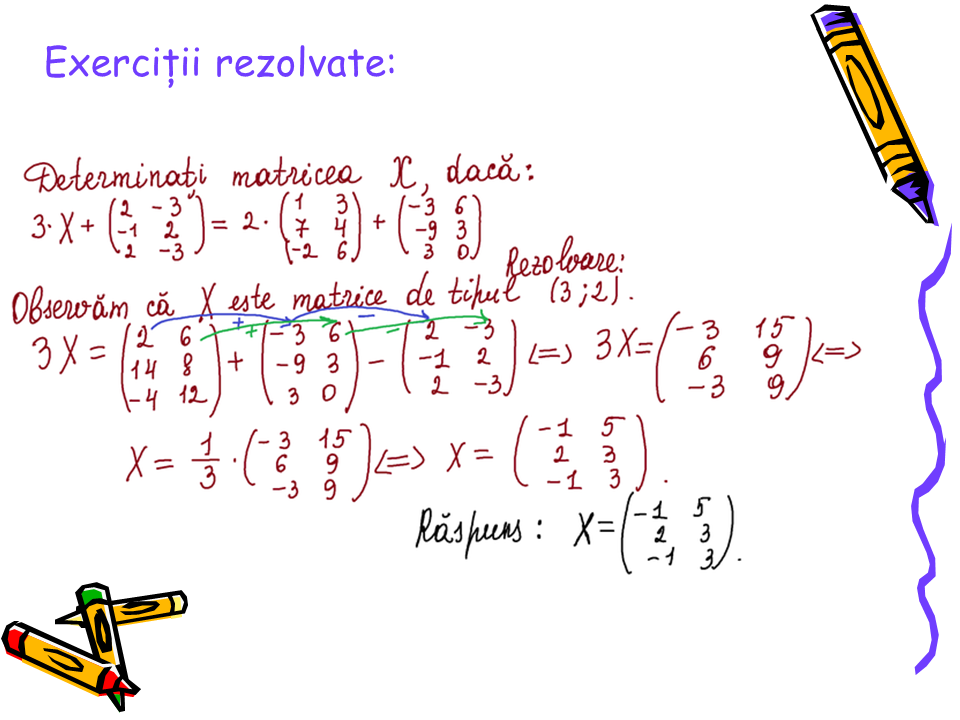 Exerciții rezolvate:
Determinați matricea X, dacă:
3·X+(2 -3; -1 2; 2 -3)=2·(1 3; 7 4; -2 6)+(-3 6; -9 3; 3 0)
Rezolvare:
Observăm că X este matrice de tipul (3;2).
3X=(2 6; 14 8; -4 12)+(-3 6; -9 3; 3 0)-(2 -3; -1 2; 2 -3)<=>3X=(-3 15; 6 9; -3 9)<=>
X=1/3·(-3 15; 6 9; -3 9)<=>X=(-1 5; 2 3; -1 3).
Răspuns: X=(-1 5; 2 3; -1 3).